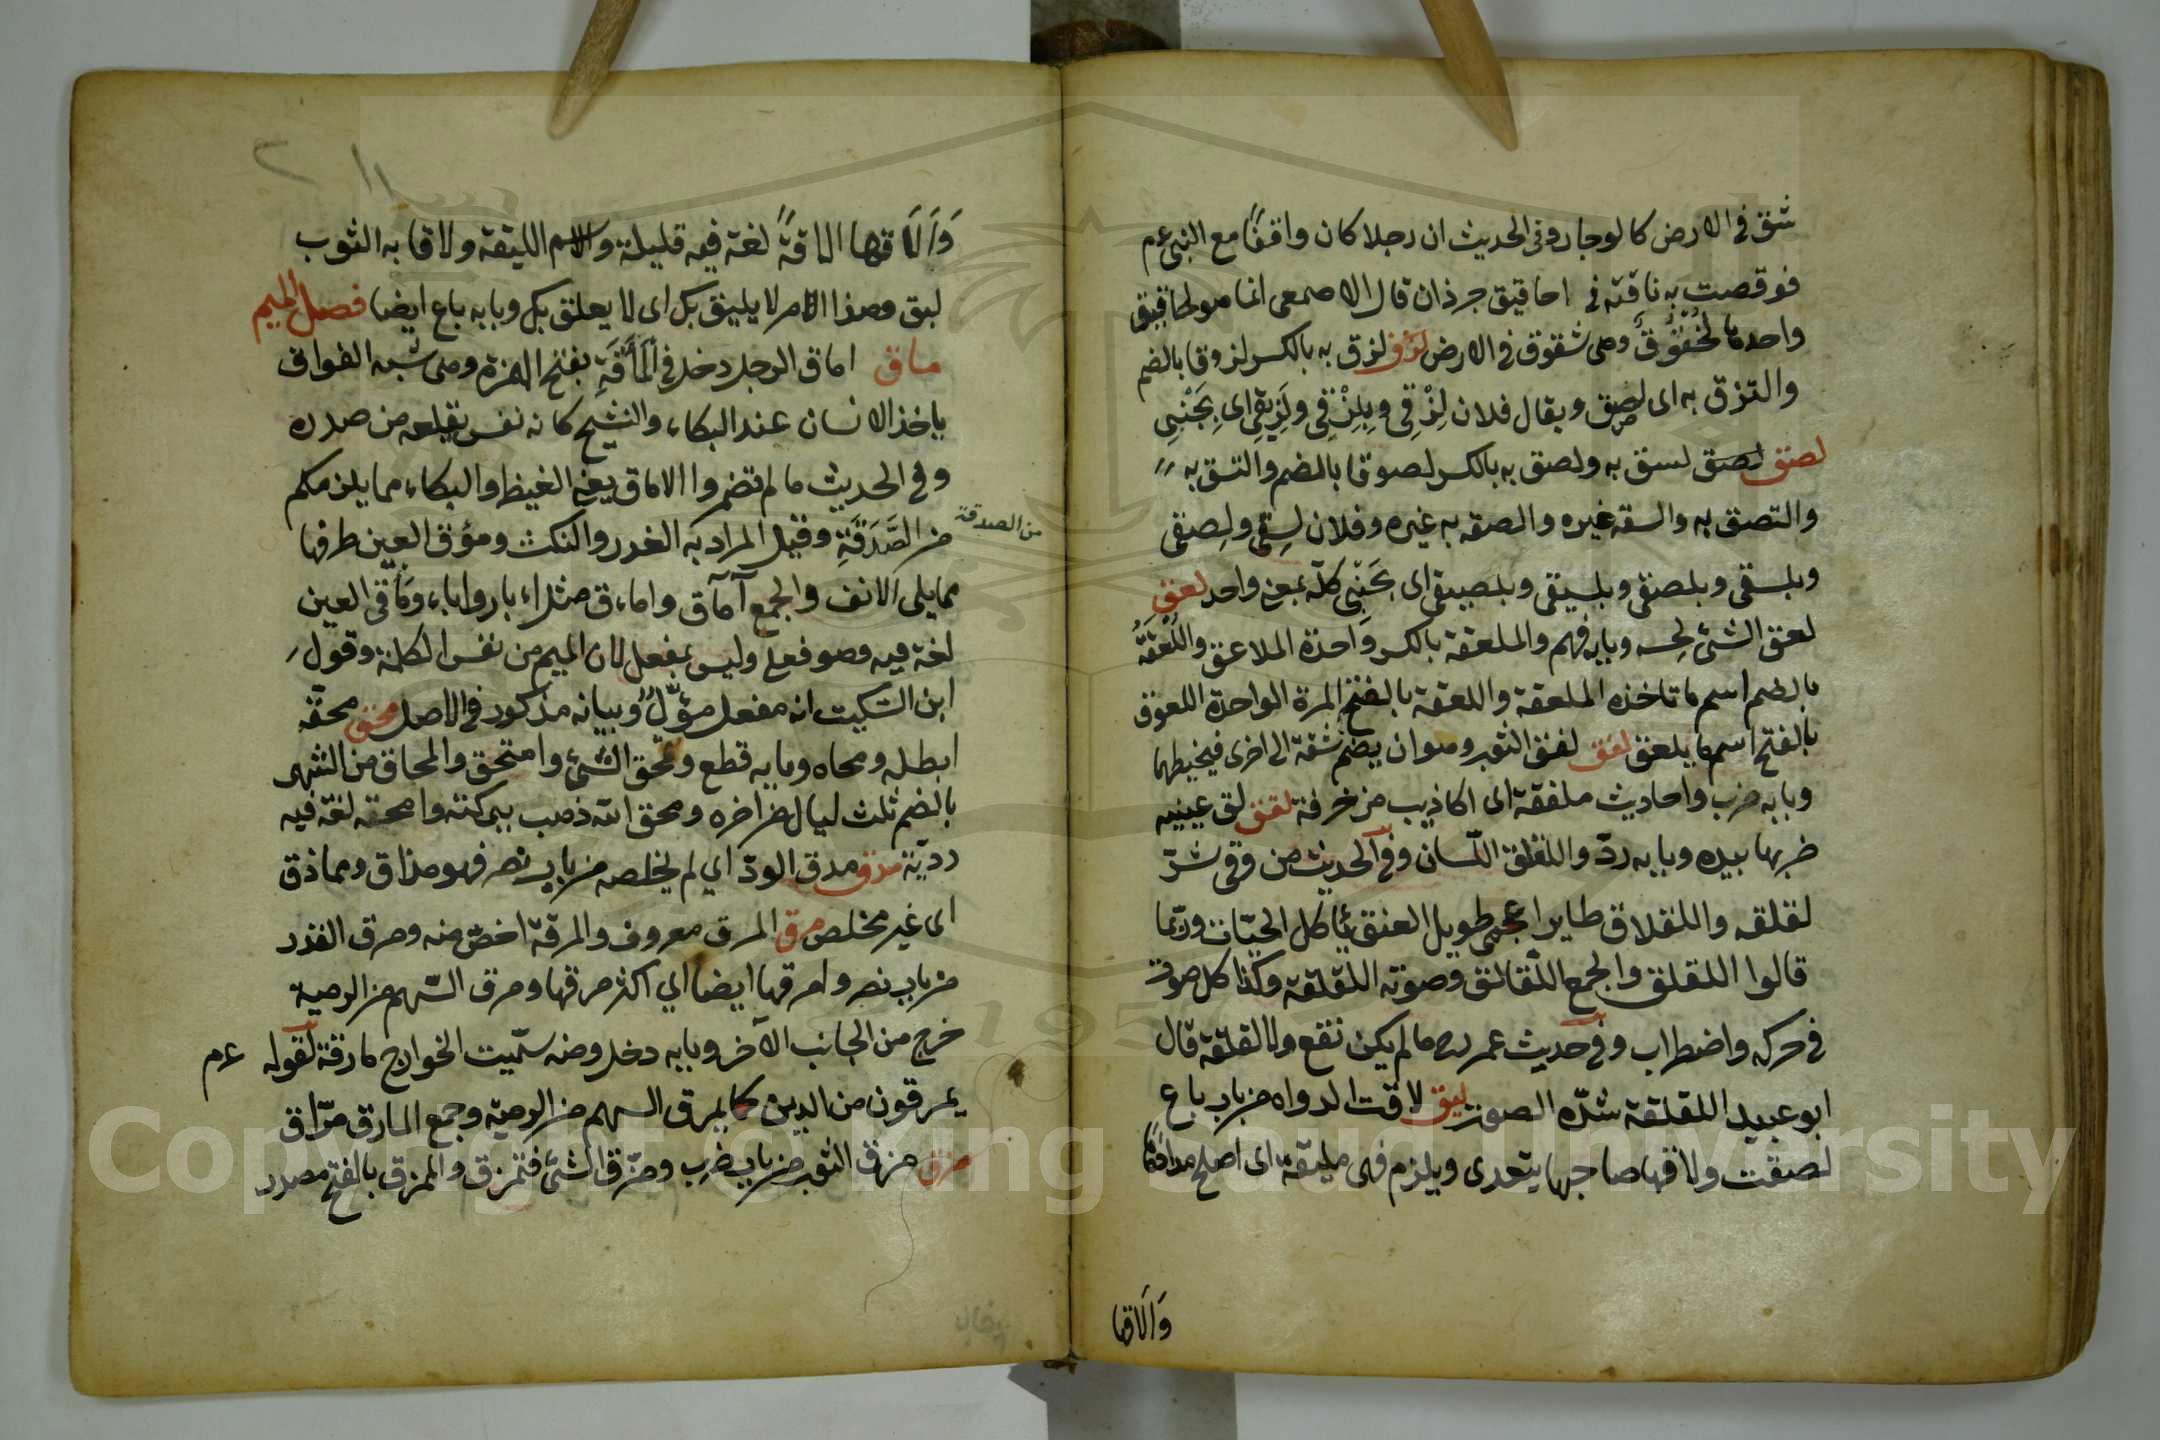 شق في الارض كالوجار وفى الحديث ان رجلا كان واقفا مع النبى عم
فوقصت به ناقته في اخاقيق جرذان قال الاصمعى انما هو لخاقيق
واحدها لُخْقُوقٌ وهى شقوق في الارض لزق لزق به بالكسر لزوقا بالضم
والتزق به اى لصق ويقال فلان لِزْقِى وبِلِزْقِى ولَزِيقِى اى بِجَنْبِى
لصق لصق لسق به ولصق به بالكسر لصوقا بالضم والتسق به
والتصق به والسقه غيره والصقه به غيره وفلان لِسقِى ولِصقى
وبلسقى وبلصقى وبلسيقى وبلصيقى اى بجَنْبى كلّه بمعنى واحد لعق
لعق الشئ لحسه وبابه فهم والملعقة بالكسر وَاحدة الملاعق واللُعْقَةُ
بالضم اسم ما تاخذه الملعقة واللعقة بالفتح المرة الواحدة اللعوق
بالفتح اسم ما يلعق لفق لفق الثوب وهوان يضم شقة الى اخرى فيخيطهما
وبابه ضرب واحاديث ملفقة اى اكاذيب مزخرفة لقق لق عينيه
ضربها بيده وبابه ردّ واللقلق اللّسان وفي الحديث من وقى شرّ
لقلقه واللقلاق طاير اعجمى طويل العنق يأكل الحيّات وربّما
قالوا اللقلق والجمع اللّقالق وصوته اللّقلقة وكذا كل صوت
في حركه واضطراب وفي حديث عمر رض مالم يكن نقع ولا لقلقة قال
ابو عبيد اللقلقة شدّه الصوت ليق لاقت الدواه من باب باع
لصقت ولاقها صاحبها يتعدى ويلزم فهى مليقة اى اصلح مدادها
وَاَلاقها
وَاَلَاقها الاقةً لغة فيه قليلة والاسم الليقة ولاقا به الثوب
لبق وهذا الامر لا يليق بك اى لا يعلق بك وبابه باع ايضا فصل الميم
ماق اماق الرجل دخل في المَأَقَةِ بفتح الهمزة وهى شبه الفواق
ياخذ الانسان عند البكاء والنشيج كانه نفس يقلعه من صدره
وفي الحديث ما لم تضمروا الاماق يعنى الغيظ والبكاء مما يلزمكم
من الصَّدَقَةِ وقيل المراد به الغدر والنكث ومؤق العين طرفها
من الصدقة
مما يلى الانف والجمع آمآق واماءق مثل اءبار وابار ومَأقى العين
لغة فيه وهو فعلى وليس بمفعل لان الميم من نفس الكلمة وقول
ابن السّكيت انه مفعل مؤوّلٌ وبيانه مذكور في الاصل محق محقه
ابطله ومحاه وبابه قطع وتمحّق الشئ وامتحق والمحاق من الشهر
بالضم ثلث ليال من اخره ومحق الله ذهب ببركته وامحقه لغة فيه
رديّة مذق مذق الودّ اي لم يخلصه من باب نصر فهو مذاق ومماذق
اى غير مخلص مرق المرق معروف والمرقة اخصّ منه ومرق القدر
من باب نصر وامرقها ايضا اي اكثر مرقها ومرق السّهم من الرمية
خرج من الجانب الآخر وبابه دخل ومنه سمّيت الخوارج مارقة لقوله عم
يمرقون من الدين كما يمرق السهم من الرمية وجمع المارق مرّاق
مزق مزق الثوب من باب ضرب ومزّق الشئ فتمزق والممزق بالفتح مصدر